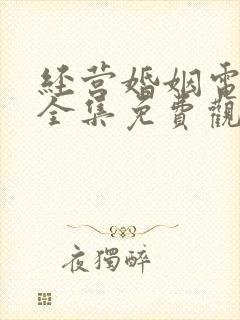 经营婚姻電
全集免費觀
夜獨醉